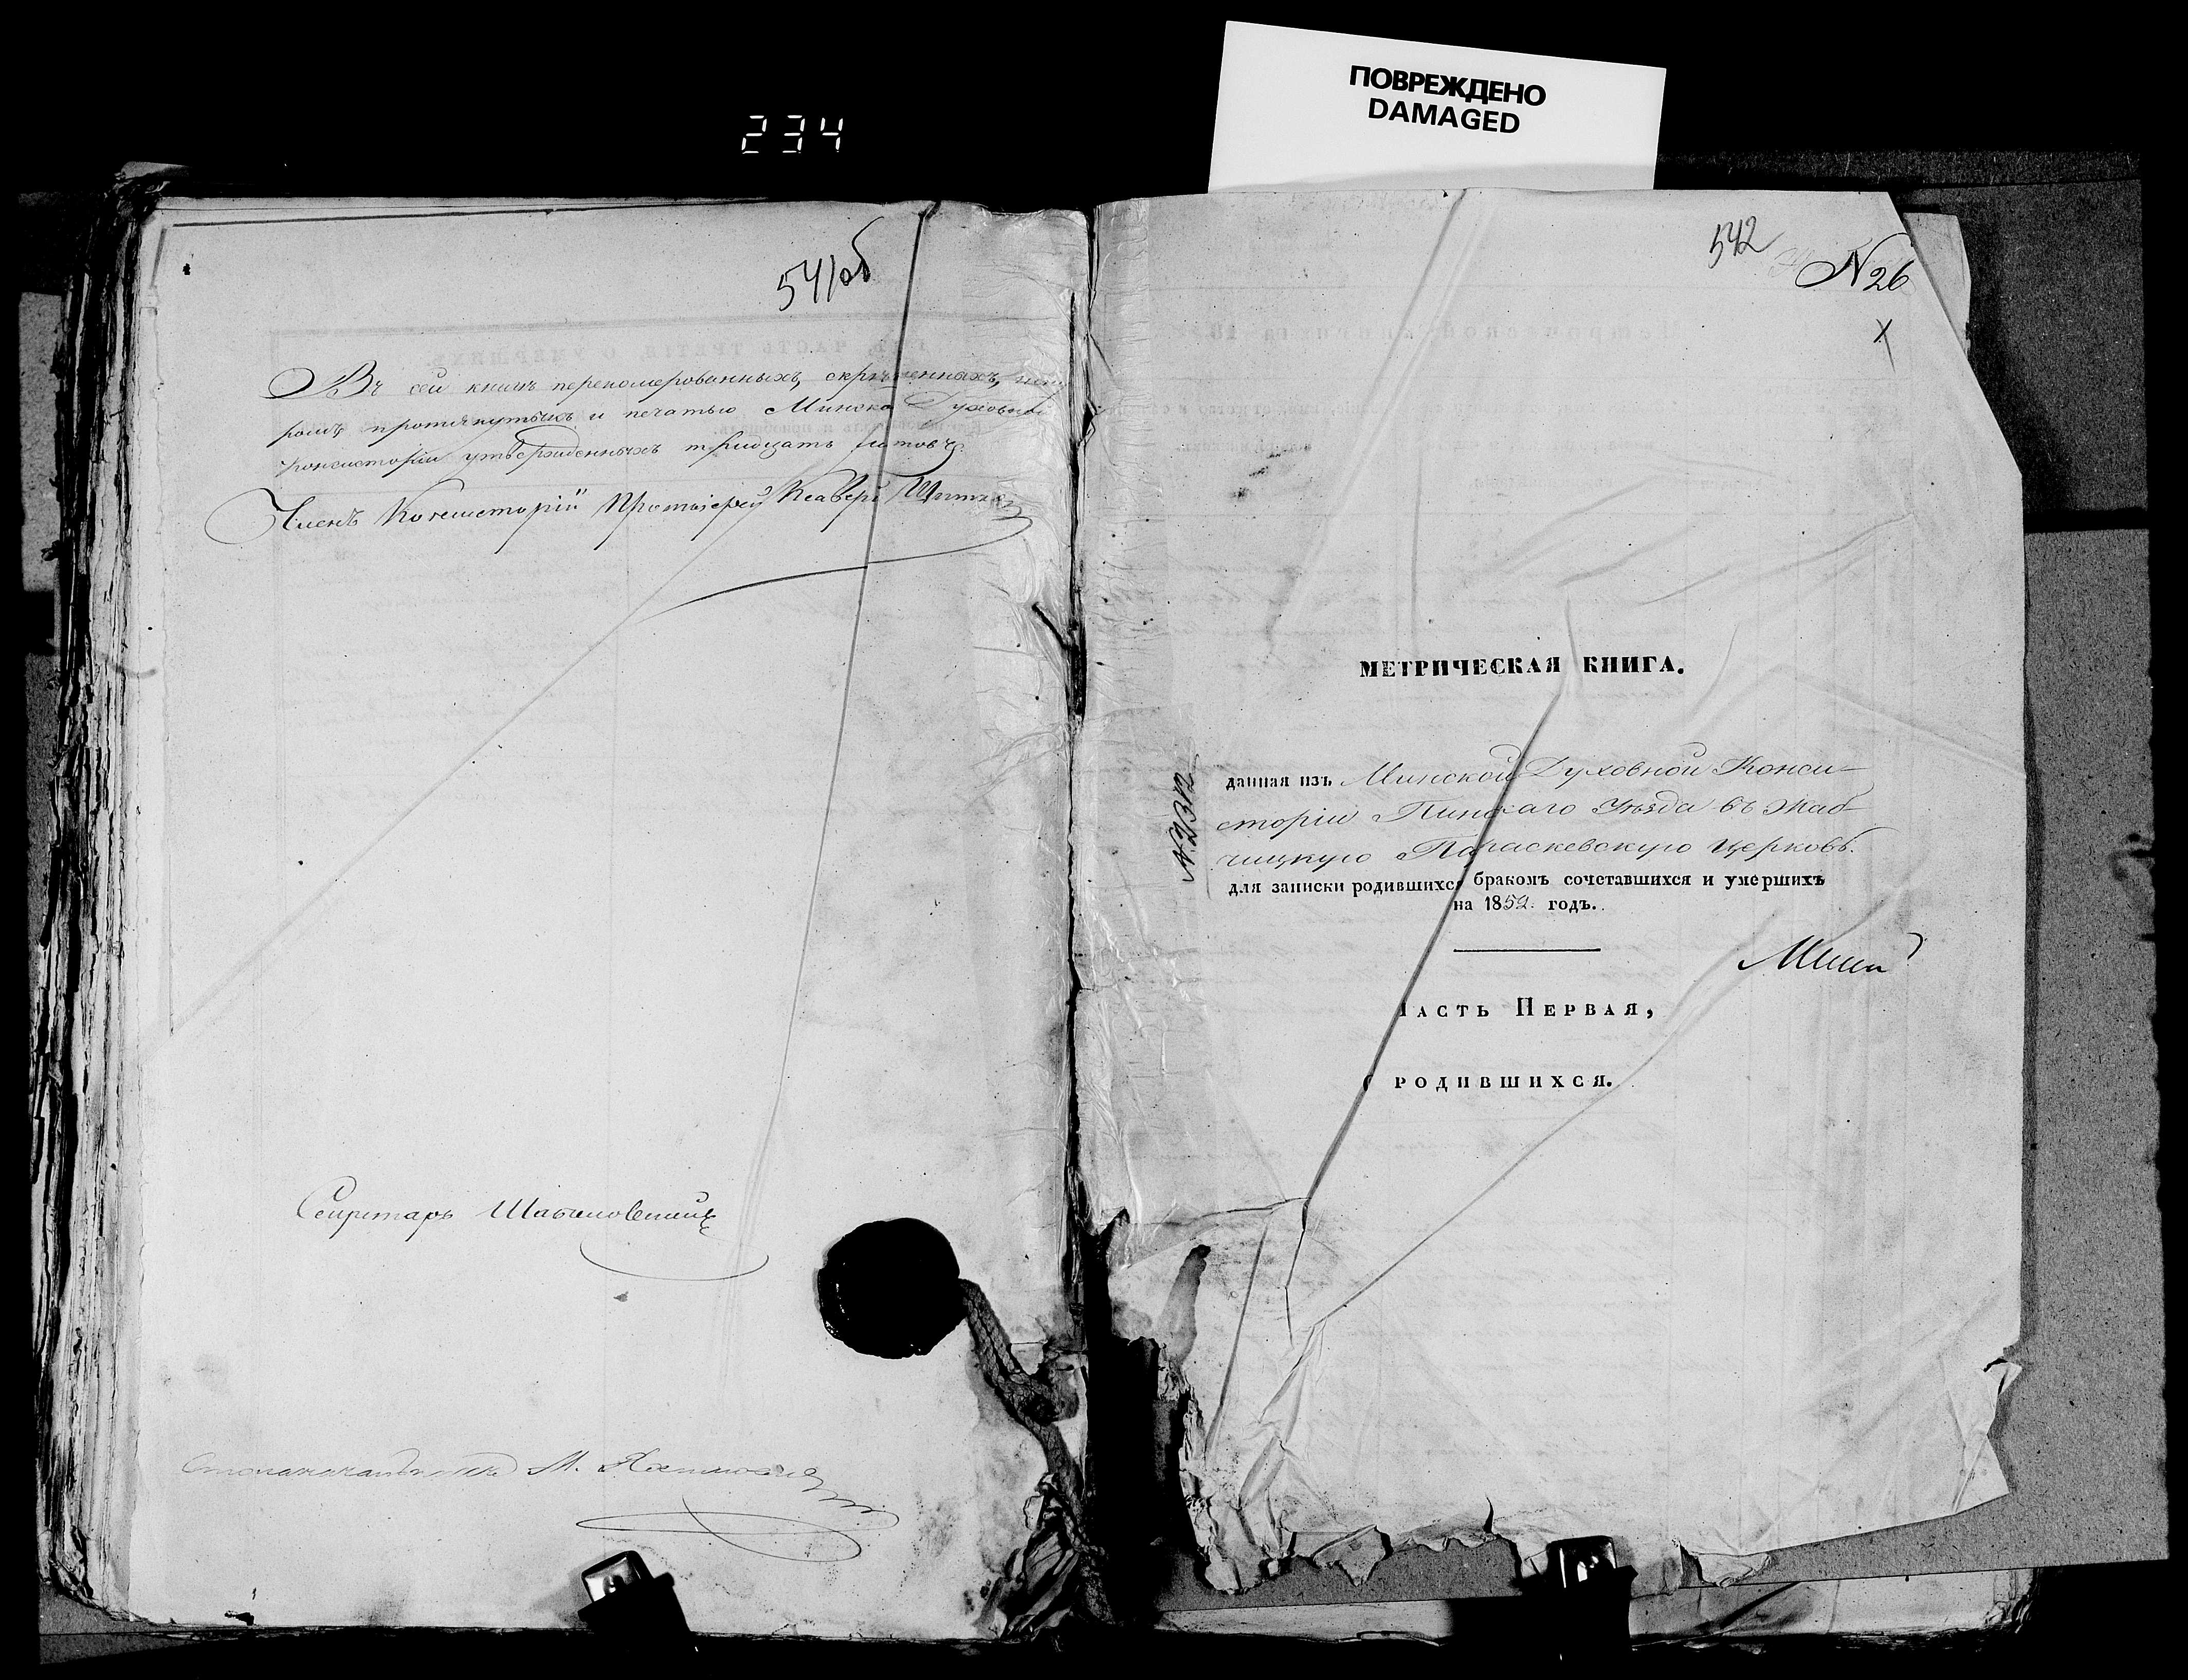 ПОВРЕЖДЕНО
DAMAGED
234
541об
Въ сей книгѣ переномерованныхъ, скрѣпенныхъ,
ромъ протянутыхъ и печатью Минской Духовной
Консисторіи утвержденныхъ тридцать листовъ.
Членъ Консисторіи Протоіерей
Секретарь
М.
542
N 26
X
МЕТРИЧЕСКАЯ КНИГА.
N. 2312
данная изъ Минской Духовной Конси-
сторіи Пинскаго Уѣзда въ Жаб-
чицкую Параскевскую церковь.
для записки родившихся бракомъ сочетавшихся и умершихъ
на 1852. годъ.
Часть Первая,
О РОДИВШИХСЯ.